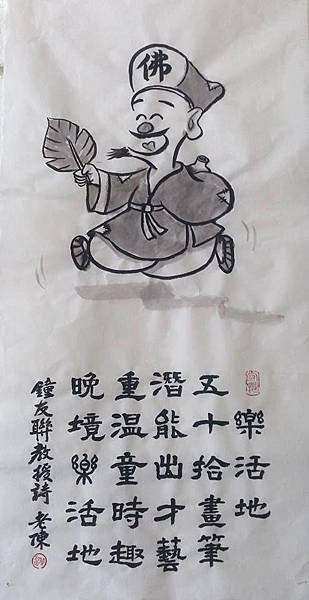 佛
樂活地
五十拾畫筆
潛能出才藝
重溫童時趣
晚境樂活地
鐘友聯教授詩 老陳